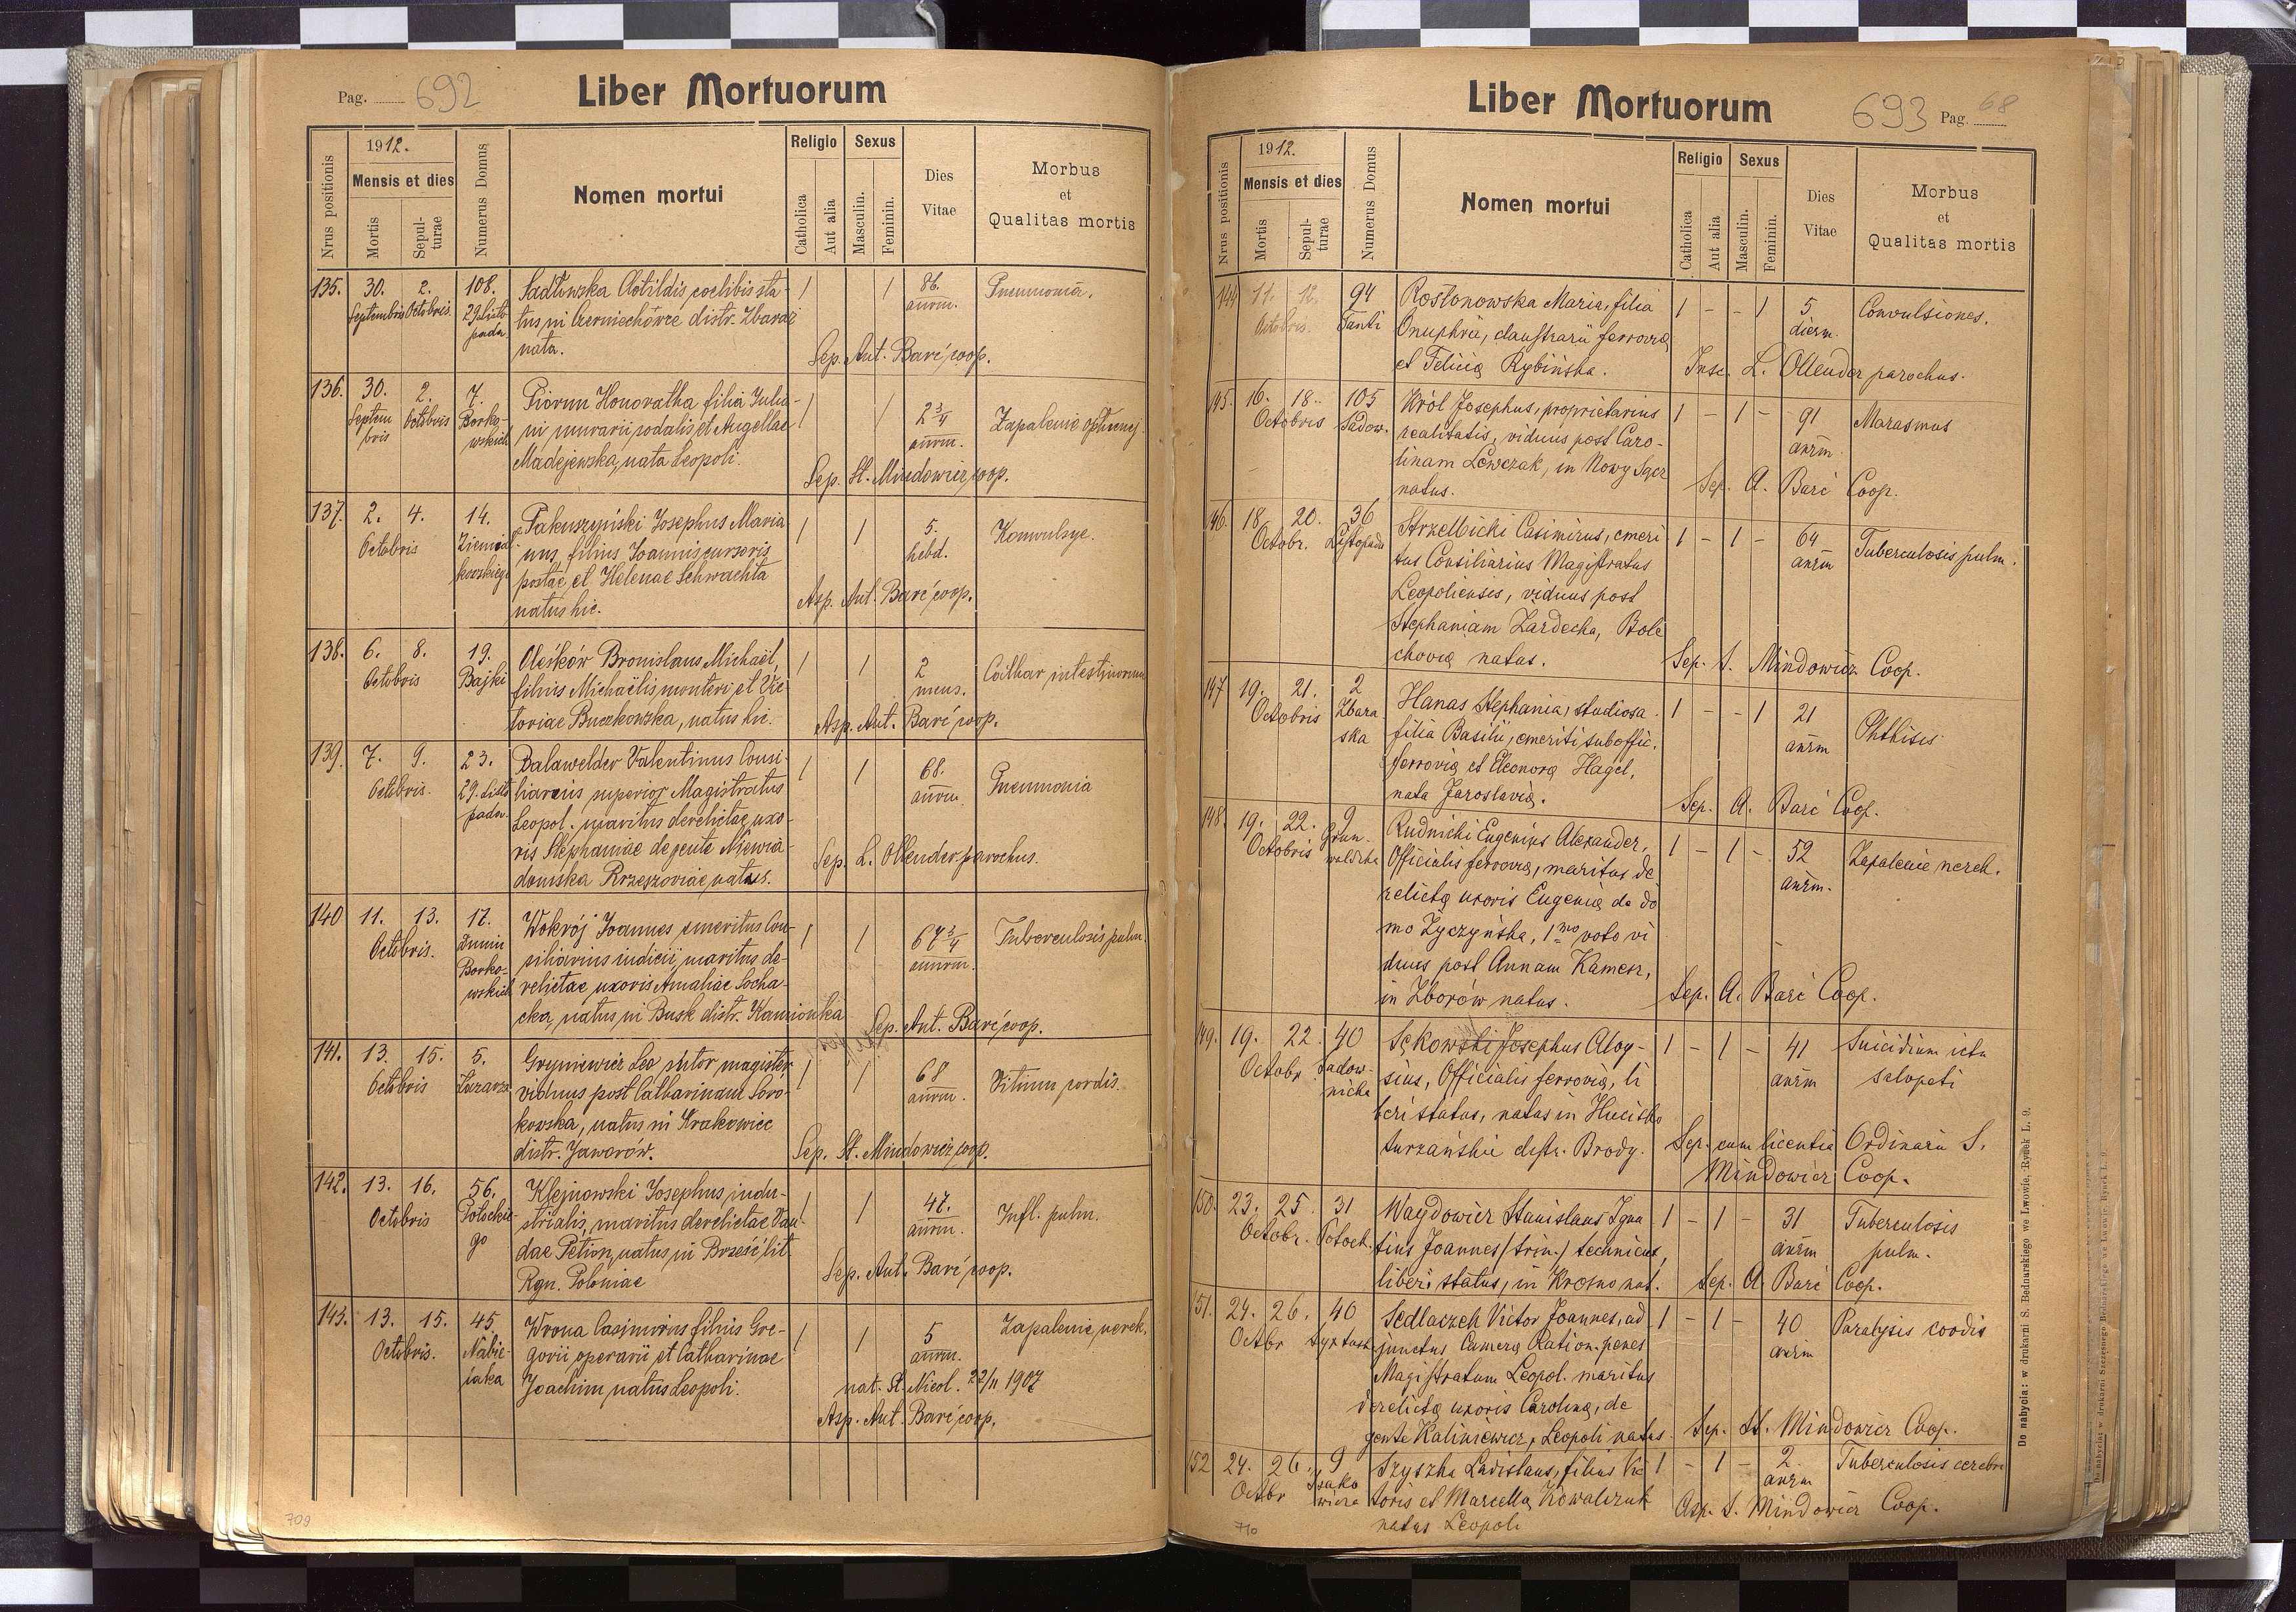 Pag. 692
Liber Mortuorum
Nrus positionis
1912.
Mensis et dies
Mortis
Sepulturae
Numerus Domus
Nomen mortui
Religio
Catholica
Aut alia
Sexus
Masculin.
Feminin.
Dies Vitae
Morbus
et
Qualitas mortis
135. 30. 2. 108. Sadłowska Clotildis coelibis sta- 1 1 86. Pneumonia.
Septembris Octobris. 29 Listo tus in Czerniechówce distr. Zbaraż annm.
padu. nata. Sep. Ant. Barć coop.
136. 30. 2. 7. Piorun Honoratha filia Julia- 1 1 2 3/4 Zapalenie
Septem Octobris Borko- ni murarii sodalis et Angellae annm.
bris wskich Madejewska, nata Leopoli. Sep. St. Mindowicz, coop.
137. 2. 4. 14. Pakuszyński Josephus Maria 1 1 5. Konwulsye.
Octobris Ziemiał- nus, filius Joannis cursoris hebd.
kowskiego postae et Helenae Schwachta
natus hic. Asp. Ant. Barć coop.
138. 6. 8. 19. Oleśków Bronislaus Michaël, 1 1 2 Cathar intestinorum
Octobris Bajki filius Michaëlis monteri et Vic mens.
toriae Buczkowska, natus hic. Asp. Ant. Barć coop.
139. 7. 9. 23. Balawelder Valentinus Consi- 1 1 68. Pneumonia
Octobris. 29. Listo liarius superior Magistratus annm.
padu. Leopol. maritus derelictae uxo-
ris Stephaniae de gente Niewia-
domska Rzeszoviae natus. Sep. L. Ollender parochus.
140 11. 13. 17. Wokrój Joannes emeritus Con- 1 1 67 3/4 Tuberculosis pulm.
Octobris. Dunin siliarius iudicii, maritus de- annm.
Borko- relictae uxoris Amaliae Socha-
wskich cka, natus in Busk distr. Kamionka Sep. Ant. Barć coop.
141. 13. 15. 5. Gryniewicz Leo sutor magister 1 1 68 Vitium cordis.
Octobris viduus post Catharinam Soro- annm.
kowska, natus in Krakowiec
distr. Jaworów. Sep. St. Mindowicz coop.
142. 13. 16. 56. Klejnowski Josephus, indu- 1 1 47. Infl. pulm.
Octobris Potockie- strialis, maritus derelictae Van- annm.
go dae Petion, natus in Brześć lit.
Rgn. Poloniae Sep. Ant. Barć coop.
143. 13. 15. 45 Wrona Casimirus filius Gre- 1 1 5 Zapalenie nerek.
Octobris. Nabie- gorii, operarii et Catharinae annm.
laka Joachim, natus Leopoli. nat. St. Nicol. 22/11 1907
Asp. Ant. Barć coop.
709
Liber Mortuorum
693 Pag. 68
Nrus positionis
1912.
Mensis et dies
Mortis
Sepulturae
Numerus Domus
Nomen mortui
Religio
Catholica
Aut alia
Sexus
Masculin.
Feminin.
Dies
Vitae
Morbus
et
Qualitas mortis
144 11. 12. 94 Rosłonowska Maria, filia 1 - - 1 5 Convulsiones.
Octobris. Janki Onuphrii, claustrarii ferroviae dierm.
et Feliciae Rybińska. Insc. L. Ollender parochus.
145. 16. 18. 105 Król Josephus, proprietarius 1 - 1 - 91 Marasmus
Octobris Sadow. realitatis, viduus post Caro- annm
linam Lewczak, in Nowy Sącz
natus. Sep. A. Barć Coop.
146. 18 20. 36 Strzelbicki Casimirus, emeri 1 - 1 - 64 Tuberculosis pulm.
Octobr. Listopada tus Consiliarius Magistratus annm
Leopoliensis, viduus post
Stephaniam Zardecka, Bole
choviae natus. Sep. S. Mindowicz Coop.
147 19. 21. 2 Hanas Stephania, studiosa 1 - - 1 21 Phthisis
Octobris Zbara filia Basilii, emeriti suboffic. annm
ska ferroviae et Eleonorae Hagel,
nata Jaroslaviae. Sep. A. Barć Coop.
148. 19. 22. 9 Rudnicki Eugenius Alexander, 1 - 1 - 52 Zapalenie nerek.
Octobris Grun- Officialis ferroviae, maritus de annm.
waldzka relictae uxoris Eugeniae de do
mo Życzyńska, 1mo voto vi
duus post Annam Kamesz,
in Zborów natus. Sep. A. Barć Coop.
149. 19. 22. 40 Sękowski Josephus Aloy- 1 - 1 - 41 Suicidium ictu
Octobr Sadow- sius, Officialis ferroviae, li annm sclopeti
nicka beri status, natus in Hucisko
turzańskie distr. Brody. Sep. cum licentia Ordinarii S.
Mindowicz Coop.
150. 23. 25. 31 Waydowicz Stanislaus Igna 1 - 1 - 31 Tuberculosis
Octobr. Potock. tius Joannes (trin.) technicus, annm pulm.
liberi status, in Krosno nat. Sep. A. Barć Coop.
151. 24. 26. 40 Sedlaczek Victor Joannes, ad 1 - 1 - 40 Paralysis cordis
Octbr Sykstusk junctus Camerae Ration. penes annm
Magistratum Leopol. maritus
derelictae uxoris Carolinae, de
gente Kaliniewicz, Leopoli natus. Sep. St. Mindowicz Coop.
152 24. 26. 9 Szyszka Ladislaus, filius Vic 1 - 1 - 2 Tuberculosis cerebri
Octbr Issako toris et Marcellae Kowalczuk annm
wicza natus Leopoli Asp. S. Mindowicz Coop.
710
Do nabycia: w drukarni S. Bednarskiego we Lwowie, Rynek L. 9.